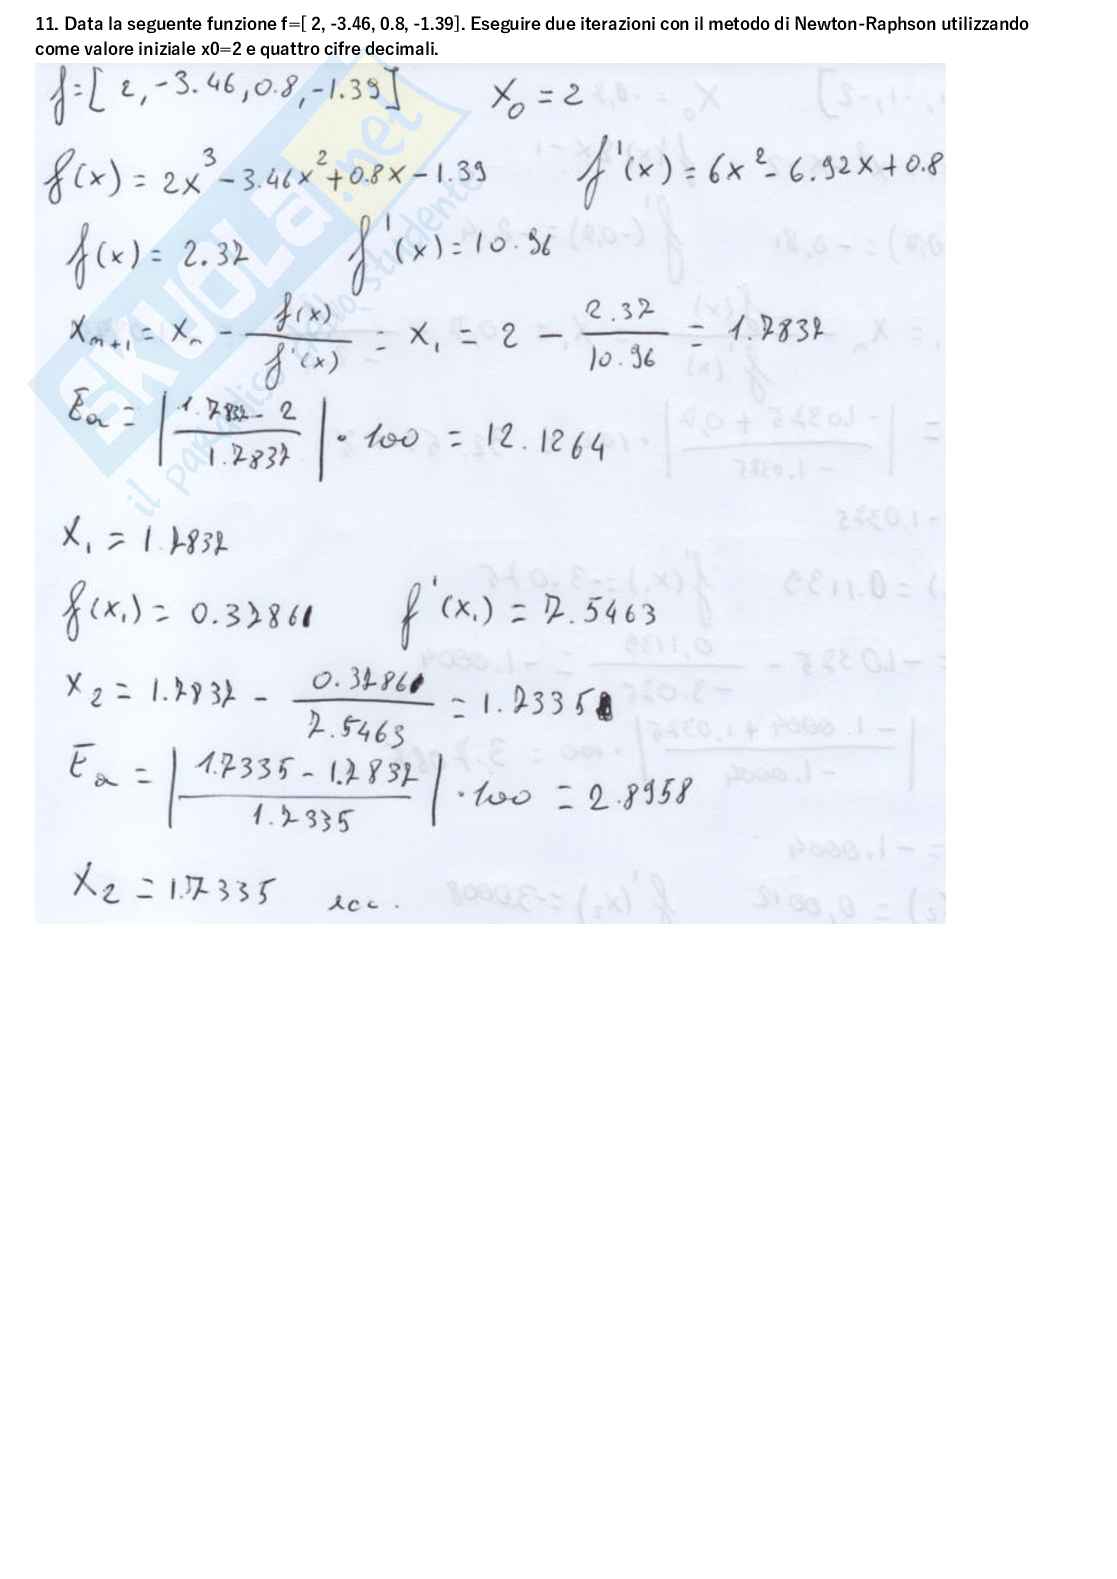 11. Data la seguente funzione f=[ 2, -3.46, 0.8, -1.39]. Eseguire due iterazioni con il metodo di Newton-Raphson utilizzando
come valore iniziale x0=2 e quattro cifre decimali.
f=[2,-3.46,0.8,-1.39] X₀ = 2
f(x) = 2x³ - 3.46x² + 0.8x - 1.39 f'(x) = 6x² - 6.92x + 0.8
f(x) = 2.37 f'(x) = 10.96
Xₙ₊₁ = Xₙ - f(x)/f'(x) = X₁ = 2 - 2.37/10.96 = 1.7837
Ea = |1.7837 - 2 / 1.7837| · 100 = 12.1264
X₁ = 1.7837
f(x₁) = 0.37861 f'(x₁) = 7.5463
X₂ = 1.7837 - 0.37861/7.5463 = 1.7335
Ea = |1.7335 - 1.7837 / 1.7335| · 100 = 2.8958
X₂ = 1.7335 ecc.
SKUOLA.net
il paradiso dello studente